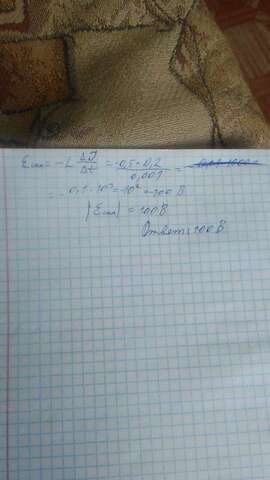 Eсам = -L ΔJ/Δt = -0,5·0,2/0,001 =
= 0,1·10³ = 10² = 100 В
|Eсам| = 100В
Ответ: 100 В